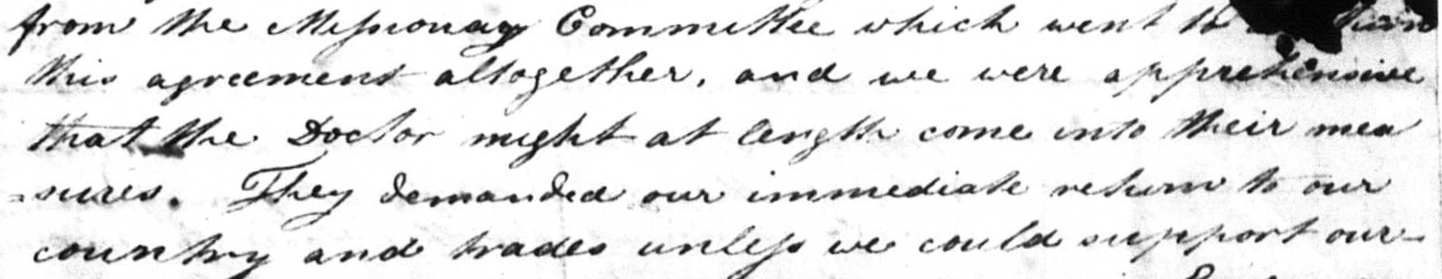 from the Missionary Committee which went to
this agreement altogether, and we were apprehensive
that the Doctor might at length come into their mea
=sures. They demanded our immediate return to our
country and trades unless we could support our-